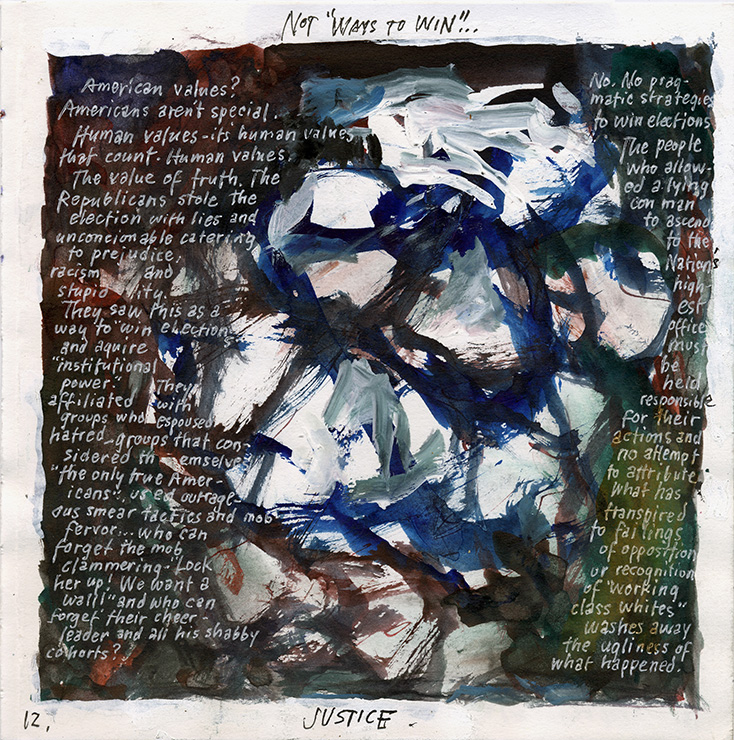 NOT "WAYS TO WIN"...
American values?
Americans aren't special.
Human values-its human values
that count. Human values.
The value of truth. The
Republicans stole the
election with lies and
unconcionable catering
to prejudice,
racism and
stupid ity.
They saw this as a
way to win election
and aquire
"institutional
power." They
affiliated with
groups who espoused
hatred-groups that con-
sidered themselves
"the only true Amer-
icans". used outrage-
ous smear tactics and mob
fervor... who can
forget the mob
clammering-"Lock
her up! We want a
wall!" and who can
forget their cheer-
leader and all his shabby
cohorts?
No. No prag-
matic strategies
to win elections
The people
who allow-
ed a lying
con man
to ascend
to the
Nation's
high-
est
office
must
be
held
responsible
for their
actions and
no attempt
to attribute
what has
transpired
to failings
of opposition
or recognition
of "working
class whites"
washes away
the ugliness of
what happened.
12.
JUSTICE